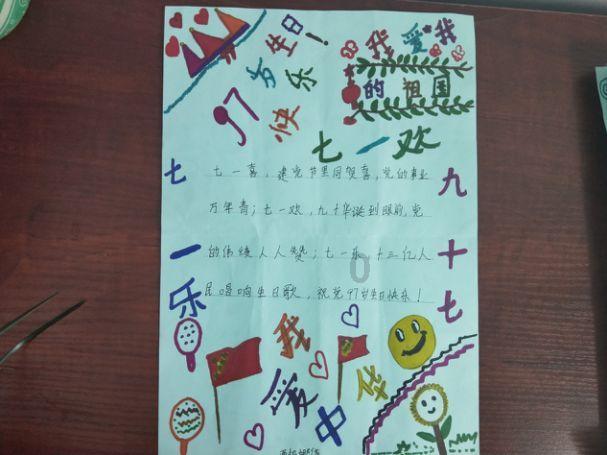 97岁生日!
快乐
我爱我
的祖国
七一欢
七一喜,建党节里同贺喜,党的事业
万年青;七一欢,九十华诞到眼前,党
的伟绩人人赞;七一乐,十三亿人
民唱响生日歌,祝党97岁生日快乐!
七一乐
九十七
我爱中华